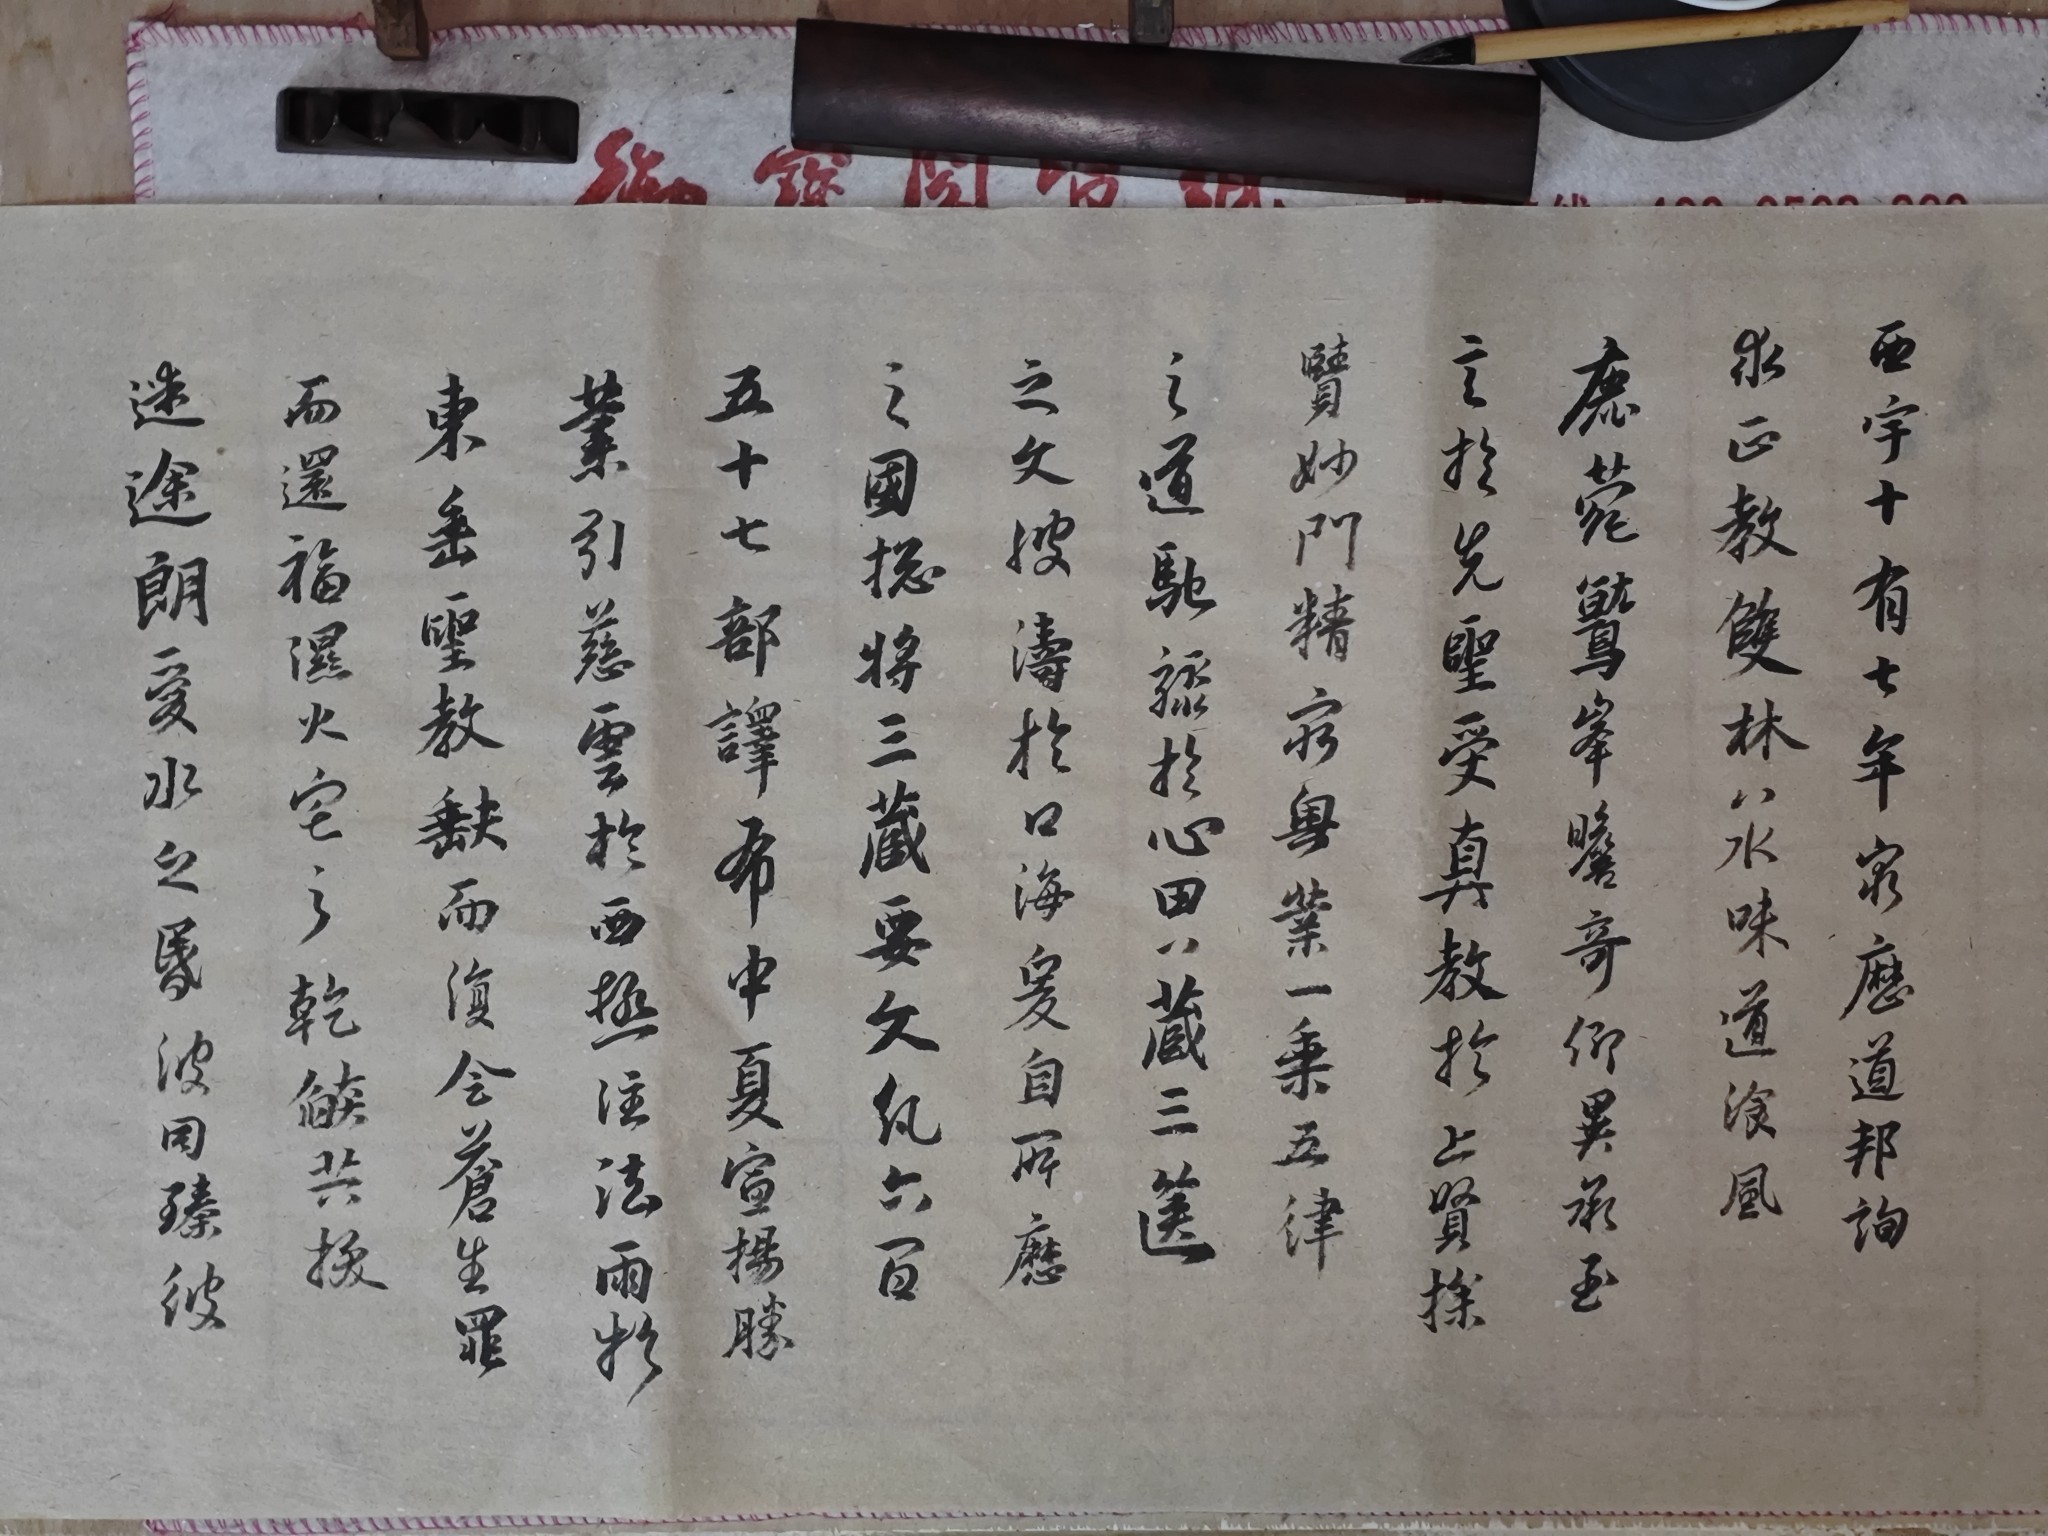 西宇十有七年窮歷道邦詢
求正教雙林八水味道湌風
鹿菀鷲峯瞻奇仰異承至
言於先聖受真教於上賢探
賾妙門精窮奧業一乘五律
之道馳驟於心田八藏三篋
之文波濤於口海爰自所歷
之國總將三藏要文凡六百
五十七部譯布中夏宣揚勝
業引慈雲於西極注法雨於
東垂聖教缺而復全蒼生罪
而還福濕火宅之乾燄共拔
迷途朗愛水之昏波同臻彼
御寶閣